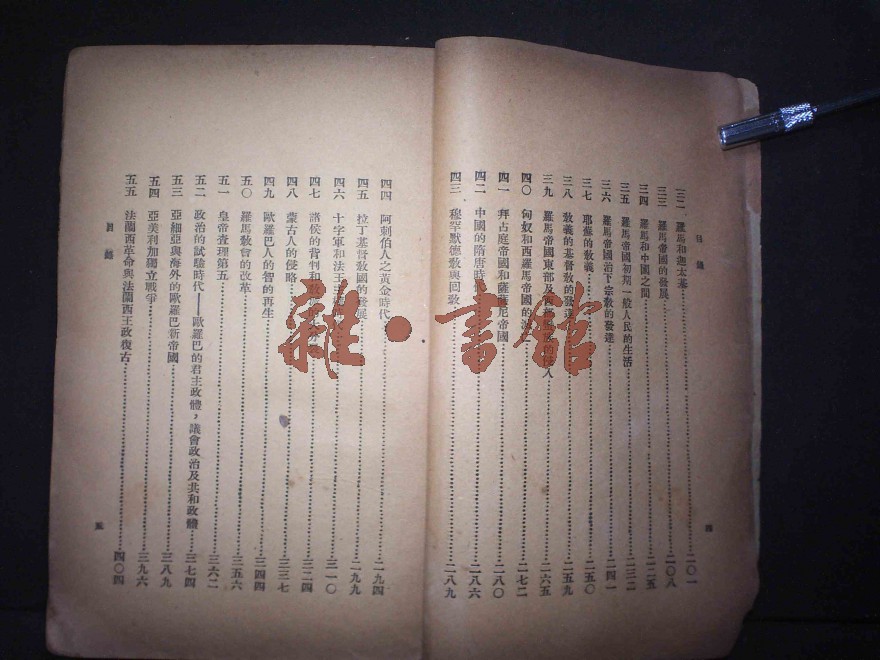 目錄
三二 羅馬和迦太基 二〇一
三三 羅馬帝國的發展 二〇八
三四 羅馬和中國之間 二二五
三五 羅馬帝國初期一般人民的生活 二三二
三六 羅馬帝國治下宗教的發達 二四一
三七 耶蘇的教義 二五〇
三八 教義的基督教的發達 二五九
三九 羅馬帝國東部及西部 人 二六五
四〇 匈奴和西羅馬帝國的 二七二
四一 拜占庭帝國和薩薩尼帝國 二八〇
四二 中國的隋唐時 二八六
四三 穆罕默德教與回教 二八九
四
四四 阿剌伯人之黃金時代 二九四
四五 拉丁基督教國的發展 二九九
四六 十字軍和法王 三一〇
四七 諸侯的背判和 三二四
四八 蒙古人的侵略 三三七
四九 歐羅巴人的智的再生 三四四
五〇 羅馬教會的改革 三五六
五一 皇帝查理第五 三六二
五二 政治的試驗時代——歐羅巴的君主政體，議會政治及共和政體 三七四
五三 亞細亞與海外的歐羅巴新帝國 三八九
五四 亞美利加獨立戰爭 三九六
五五 法蘭西革命與法蘭西王政復古 四〇四
目錄
五
雜·書館